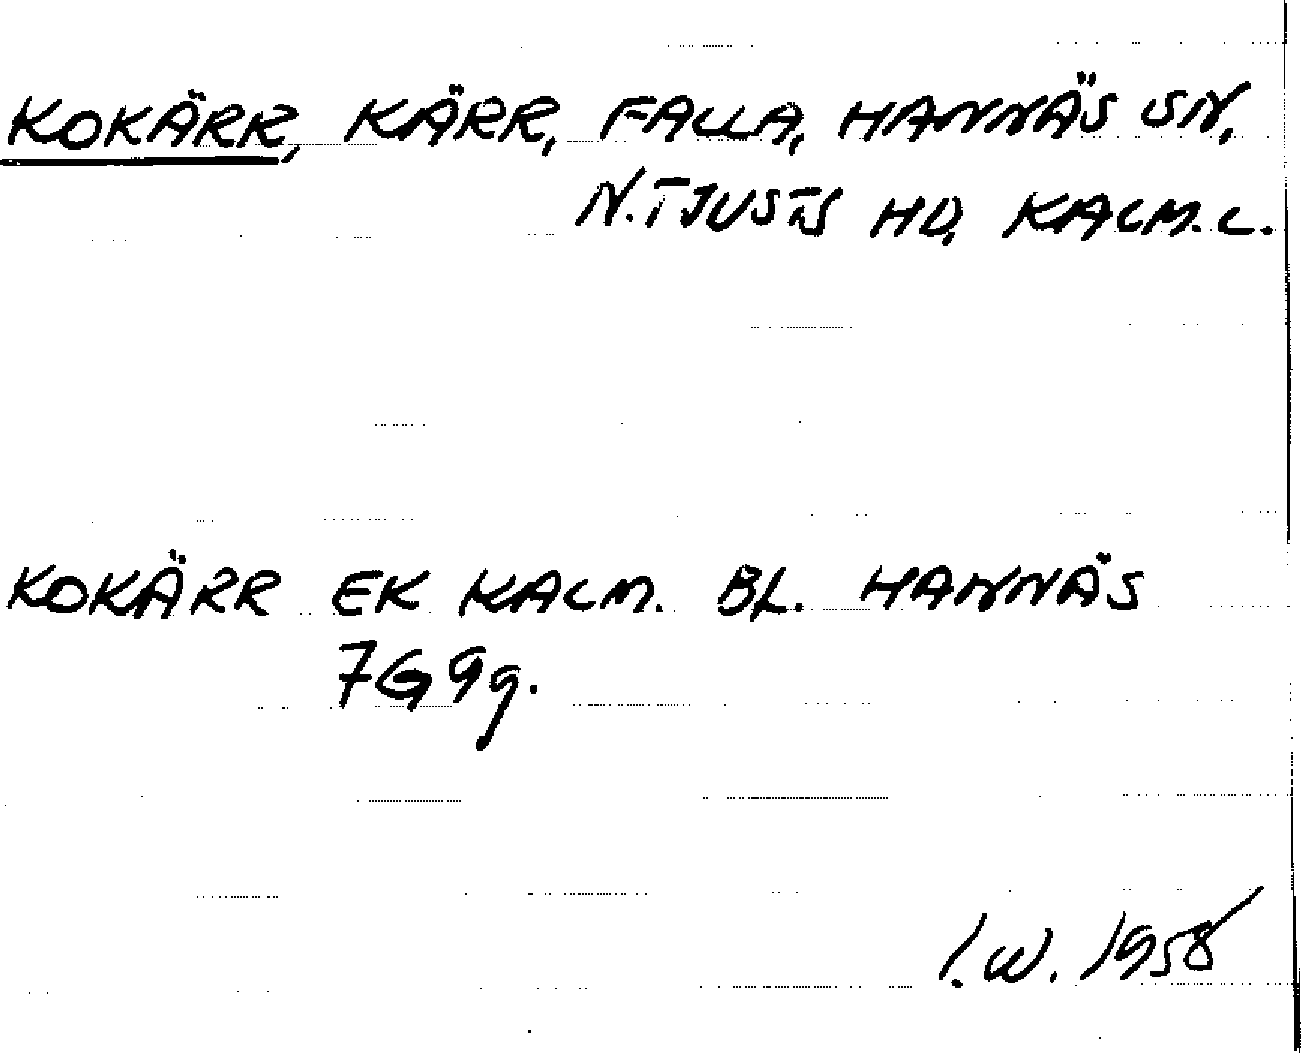 KOKÄRR, KÄRR, FALLA, HANNÄS SN,
N. TJUSTS HD, KALM. L.
KOKÄRR EK KALM. BL. HANNÄS
7G9g.
I.W. 1958